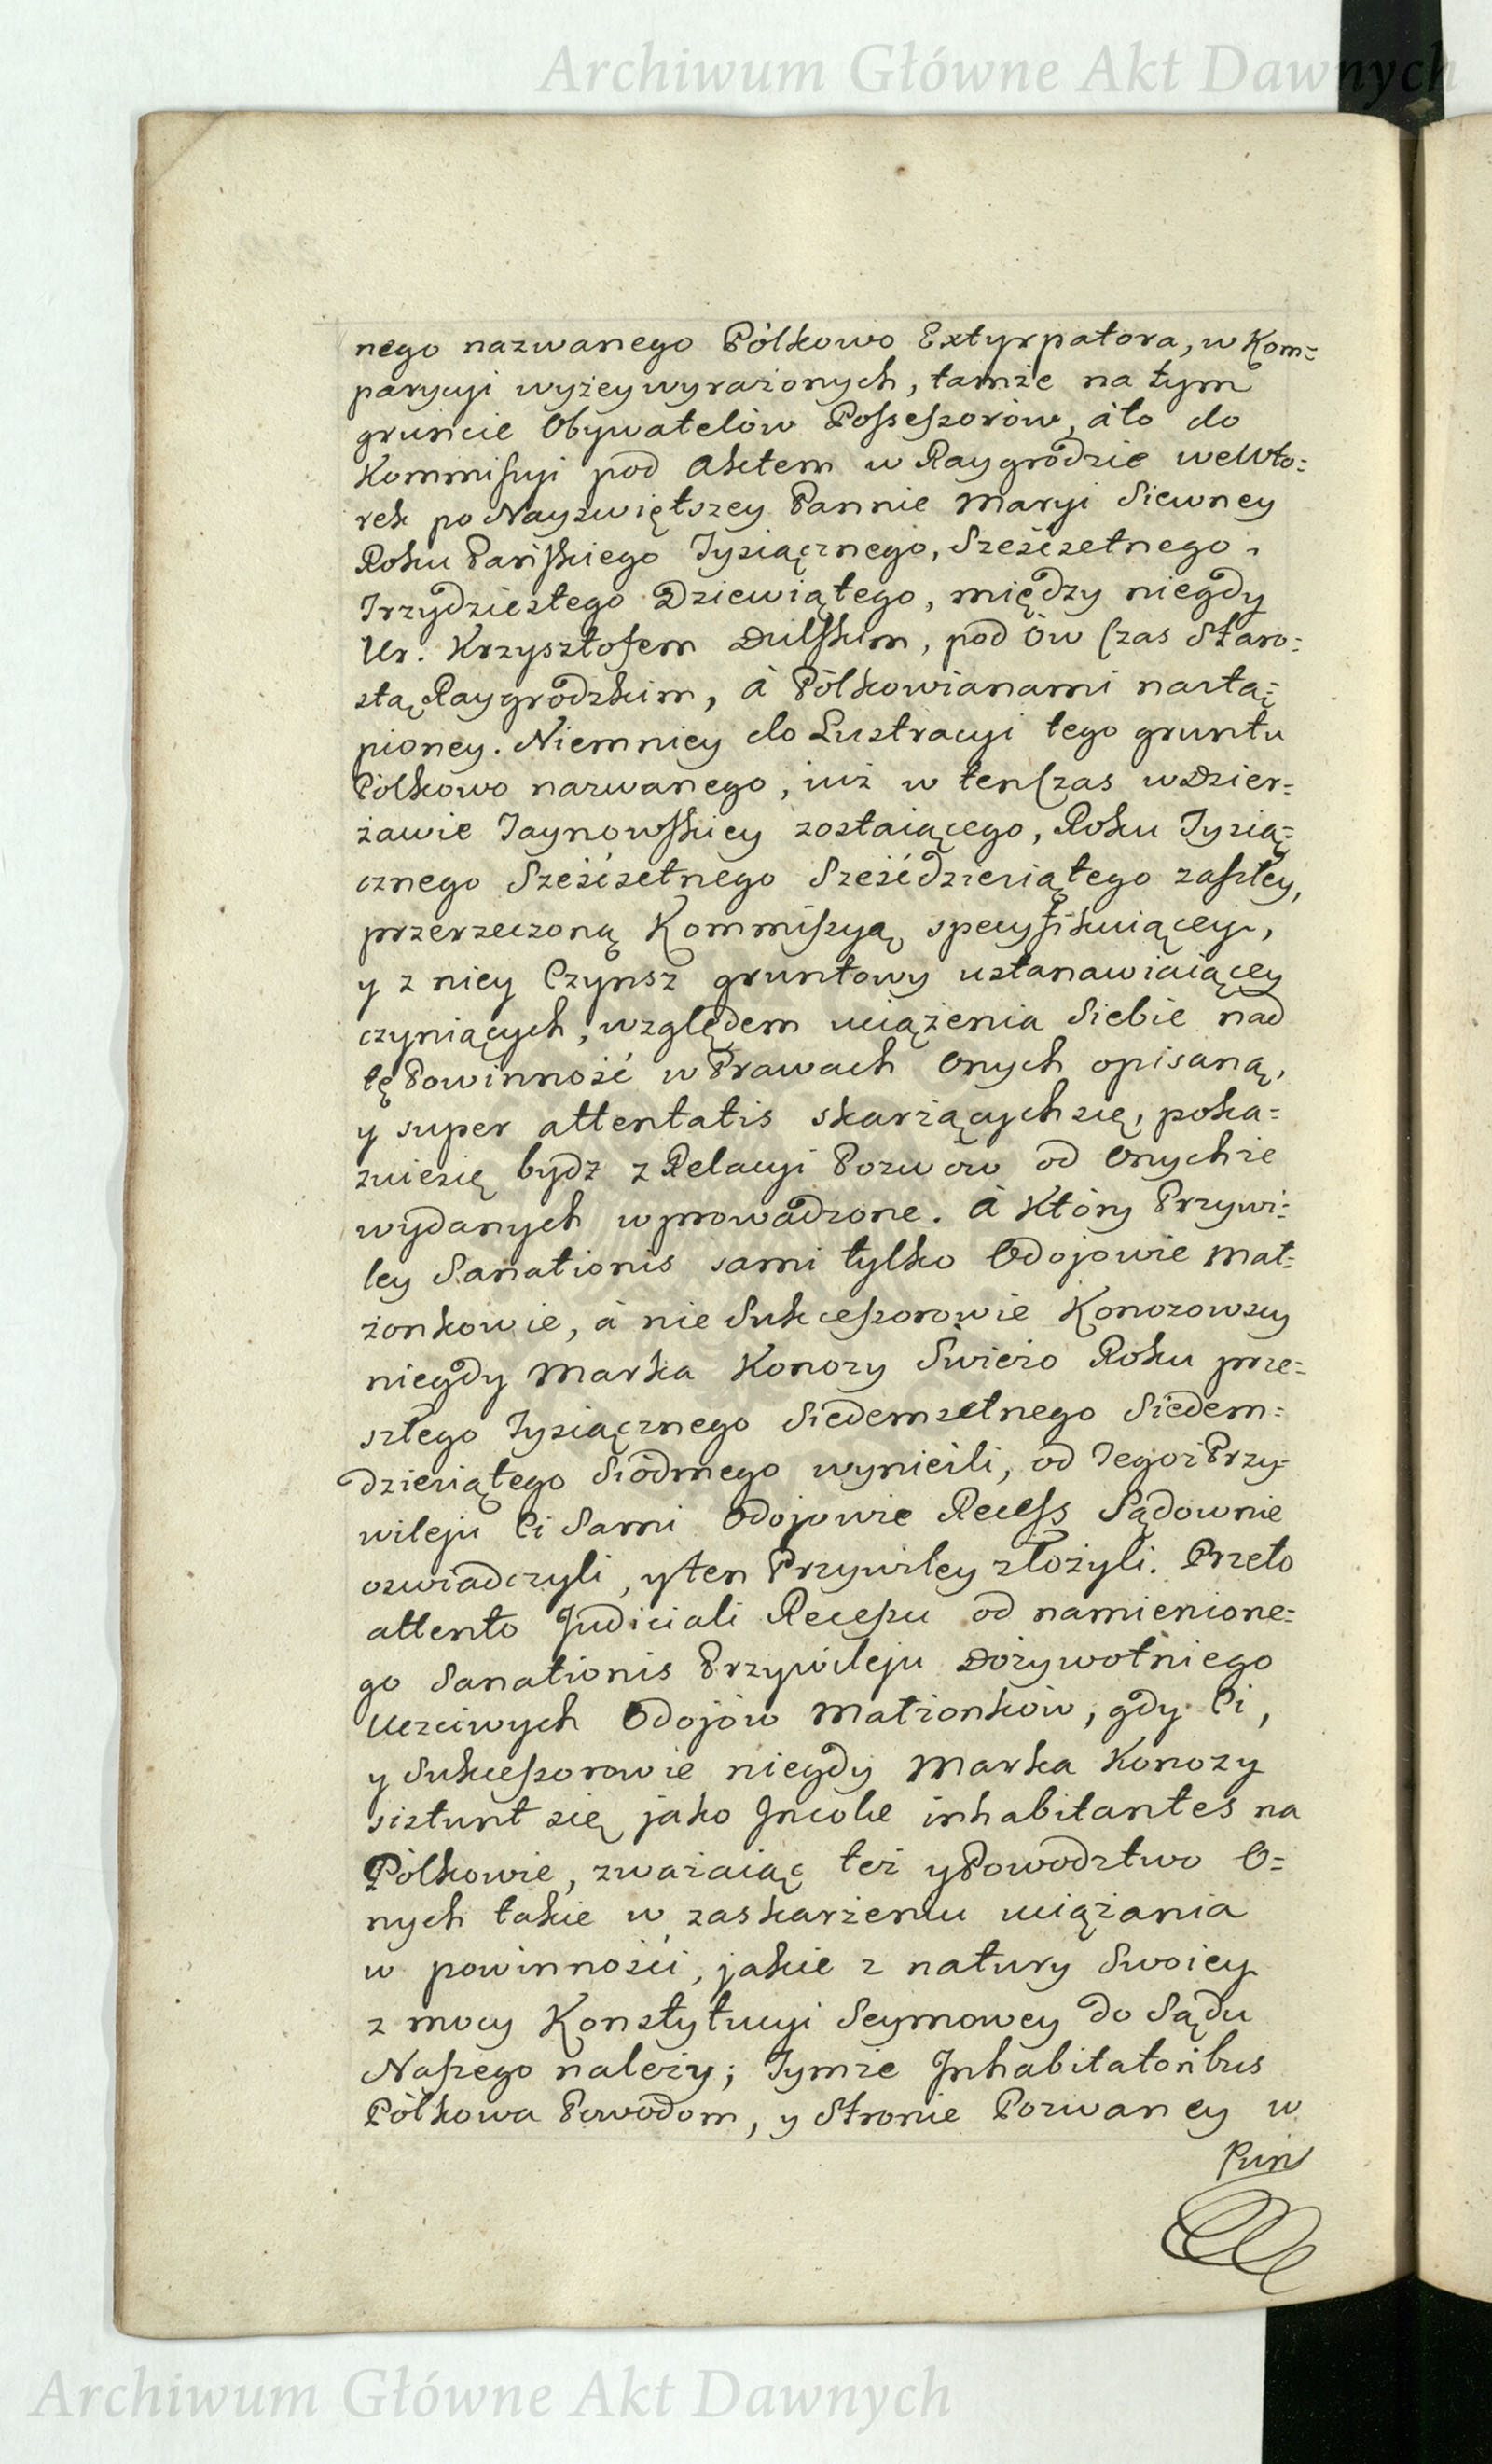 Archiwum Główne Akt Dawnych
nego nazwanego Pólkowo Extyrpatora, w Kom=
parycyi wyżey wyrażonych, tamże na tym
gruncie Obywatelów Possessorów, áto do
Kommissyi pod Aktem w Raygrodzie we Wto=
rek po Nayświętszey Pannie Maryi Siewney
Roku Pańskiego Tysiącznego, Sześćsetnego.
Trzydziestego Dziewiątego, między niegdy
Ur. Krzysztofem Dulskim, pod ów Czas Staro=
stą Raygrodzkim, á Pólkowianami nastą=
pioney. Niemniey do Lustracyi tego gruntu
Pólkowo nazwanego, iuż w tenczas w Dzier=
żawie Taynowskiey zostaiącego, Roku Tysią=
cznego Sześćsetnego Sześćdziesiątego zaszłey,
przerzeczoną Kommissyą specyfikuiącey,
y z niey Czynsz gruntowy ustanawiaiącey
czyniących, względem uciążenia Siebie nad
tę Powinność w Prawach Onych opisaną,
y super attentatis skarżących się, poka=
zuie się bydź z Relacyi Pozwów od Onychże
wydanych wprowadzone. á Który Przywi=
ley Sanationis sami tylko Odojowie Mał=
żonkowie, á nie Sukcessorowie Konozowscy
niegdy Marka Konozy Świeżo Roku prze=
szłego Tysiącznego Siedemsetnego Siedem=
dziesiątego Siódmego wynieśli, od Tegoż Przy=
wileju Ci Sami Odojowie Recess Sądownie
oświadczyli, y ten Przywiley złożyli. Przeto
attento Judiciali Recessu od namienione=
go Sanationis Przywileju Dożywotniego
Uczciwych Odojów Małżonków, gdy Ci,
y Sukcessorowie niegdy Marka Konozy
sistunt się jako Incolæ inhabitantes na
Pólkowie, zważaiąc też y Powodztwo O=
nych takie w zaskarżeniu uciążania
w powinności, jakie z natury Swoiey
z mocy Konstytucyi Seymowey do Sądu
Naszego należy; Tymże Inhabitatoribus
Pólkowa Powodom, y Stronie Pozwaney w
Pun
Archiwum Główne Akt Dawnych